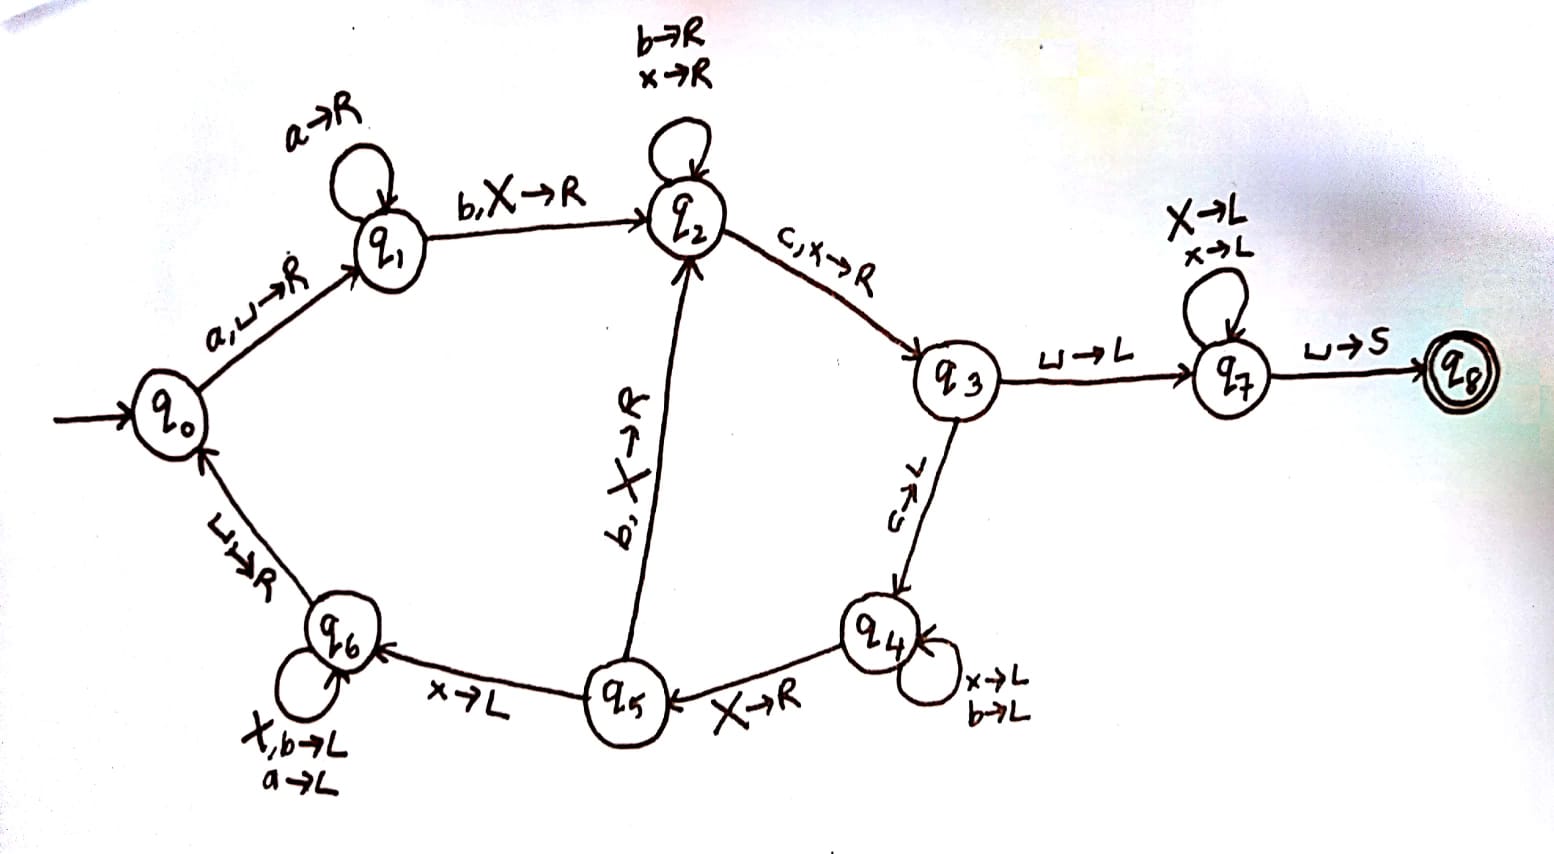 b→R
x→R
a→R
b,X→R
q₂
q₁
c,x→R
X→L
x→L
a,⊔→R
q₀
q₃
⊔→L
q₇
⊔→S
q₈
b,X→R
c→L
⊔→R
q₆
q₄
x→L
b→L
x→L
q₅
X→R
X,b→L
a→L